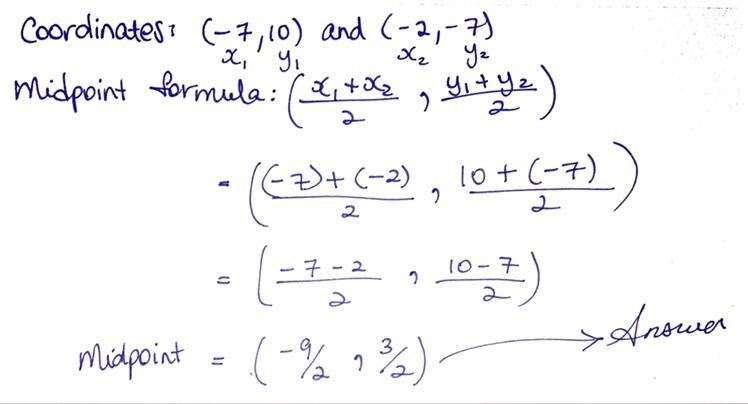 Coordinates: (-7,10) and (-2,-7)
x₁ y₁ x₂ y₂
Midpoint formula: ((x₁+x₂)/2 , (y₁+y₂)/2)
= (((-7)+(-2))/2 , (10+(-7))/2)
= ((-7-2)/2 , (10-7)/2)
Midpoint = (-9/2 , 3/2) → Answer